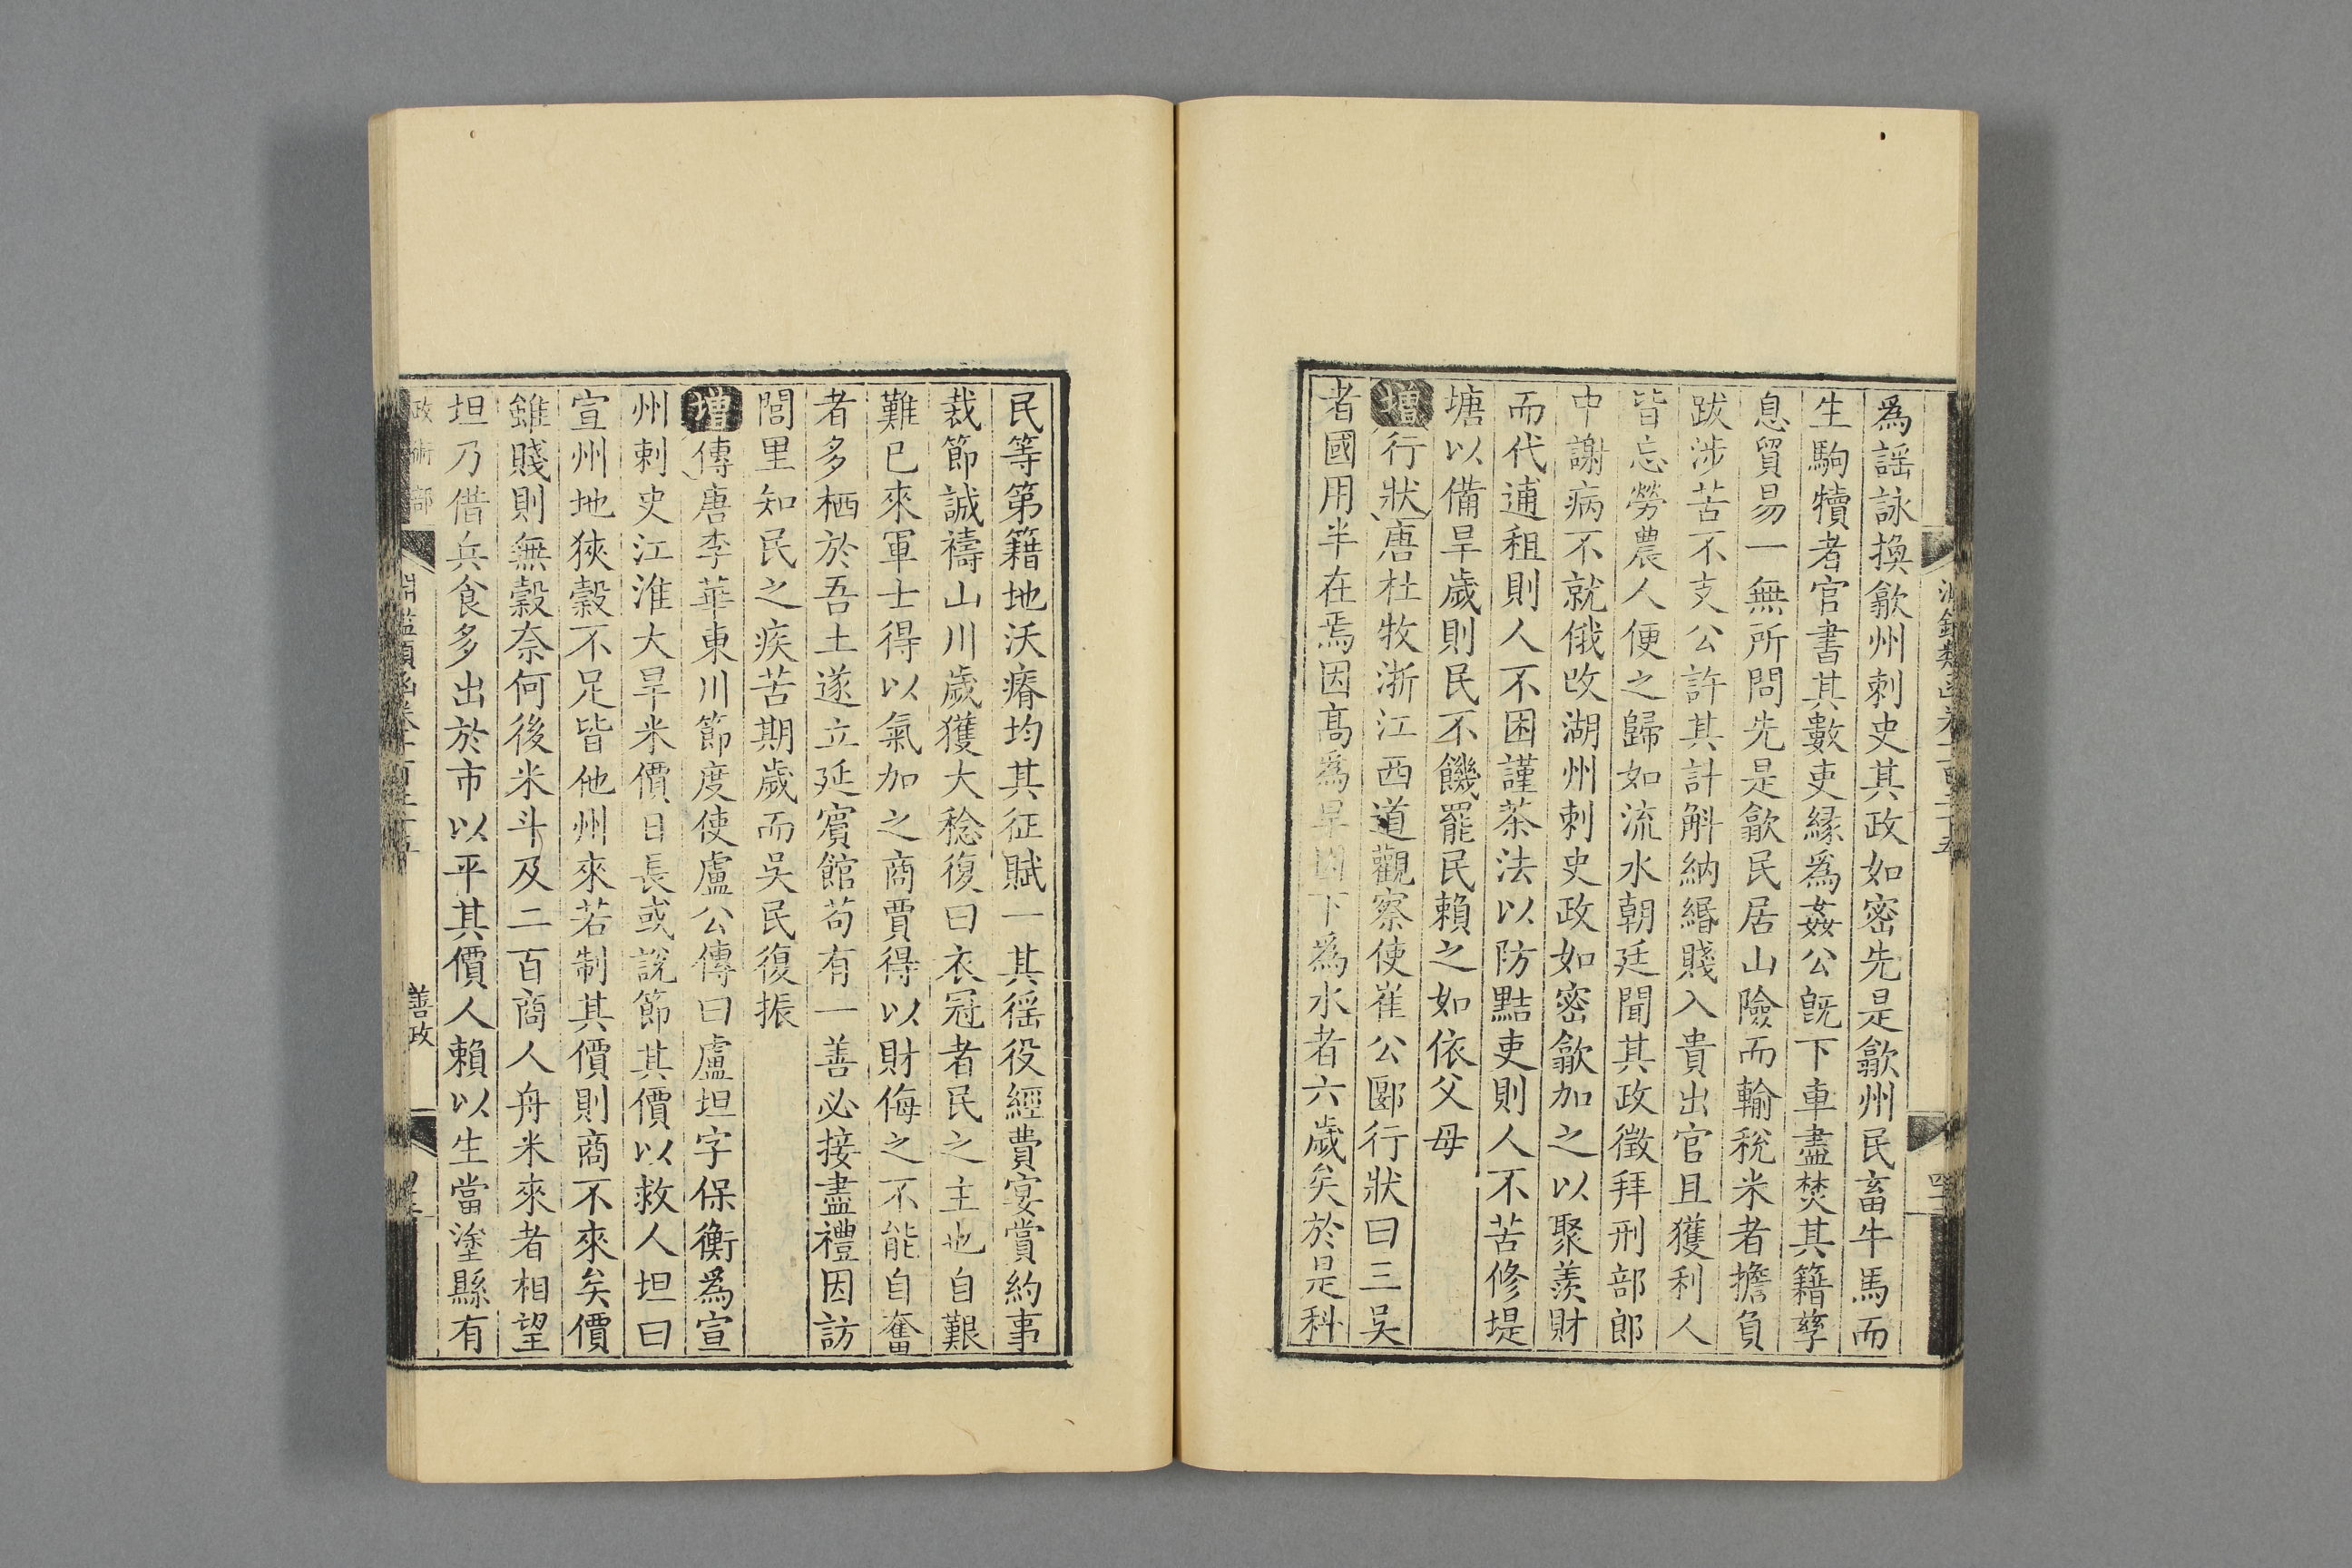 爲謡詠換歙州刺史其政如密先是歙州民畜牛馬而
生駒犢者官書其數吏縁爲姦公旣下車盡焚其籍孳
息貿易一無所問先是歙民居山險而輸税米者擔負
跋涉苦不支公許其計斛納緡賤入貴出官且獲利人
皆忘勞農人便之歸如流水朝廷聞其政徵拜刑部郎
中謝病不就俄改湖州刺史政如密歙加之以聚羨財
而代逋租則人不困謹茶法以防黠吏則人不苦修堤
塘以備旱歲則民不饑罷民賴之如依父母
增行狀唐杜牧浙江西道觀察使崔公郾行狀曰三吳
者國用半在焉因髙爲旱因下爲水者六歲矣於是科
民等第籍地沃瘠均其征賦一其徭役經費宴賞約事
裁節誠禱山川歲獲大稔復曰衣冠者民之主也自艱
難已來軍士得以氣加之商賈得以財侮之不能自奮
者多栖於吾土遂立延賔館苟有一善必接盡禮因訪
閭里知民之疾苦期歲而吳民復振
增傳唐李華東川節度使盧公傳曰盧坦字保衡爲宣
州刺史江淮大旱米價日長或說節其價以救人坦曰
宣州地狹穀不足皆他州來若制其價則商不來矣價
雖賤則無穀奈何後米斗及二百商人舟米來者相望
坦乃借兵食多出於市以平其價人賴以生當塗縣有
政術部
善政